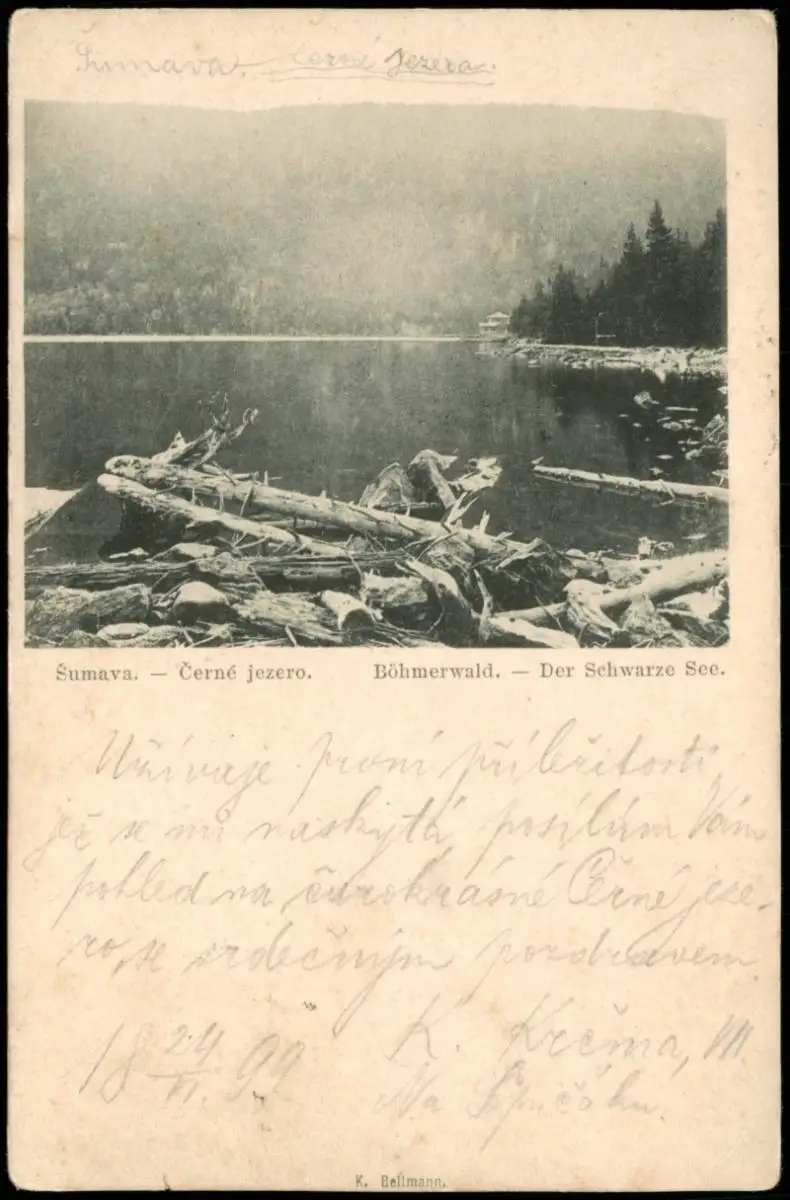 Šumava. Černé Jezera.
Šumava. — Černé jezero. Böhmerwald. — Der Schwarze See.
Užívaje první příležitosti,
jež se mi naskytá, posílám Vám
pohled na čarokrásné Černé jeze-
ro, se srdečným pozdravem
K. Krčma, VII.
18 24/VI. 99
Na Špičáku.
K. Bellmann.